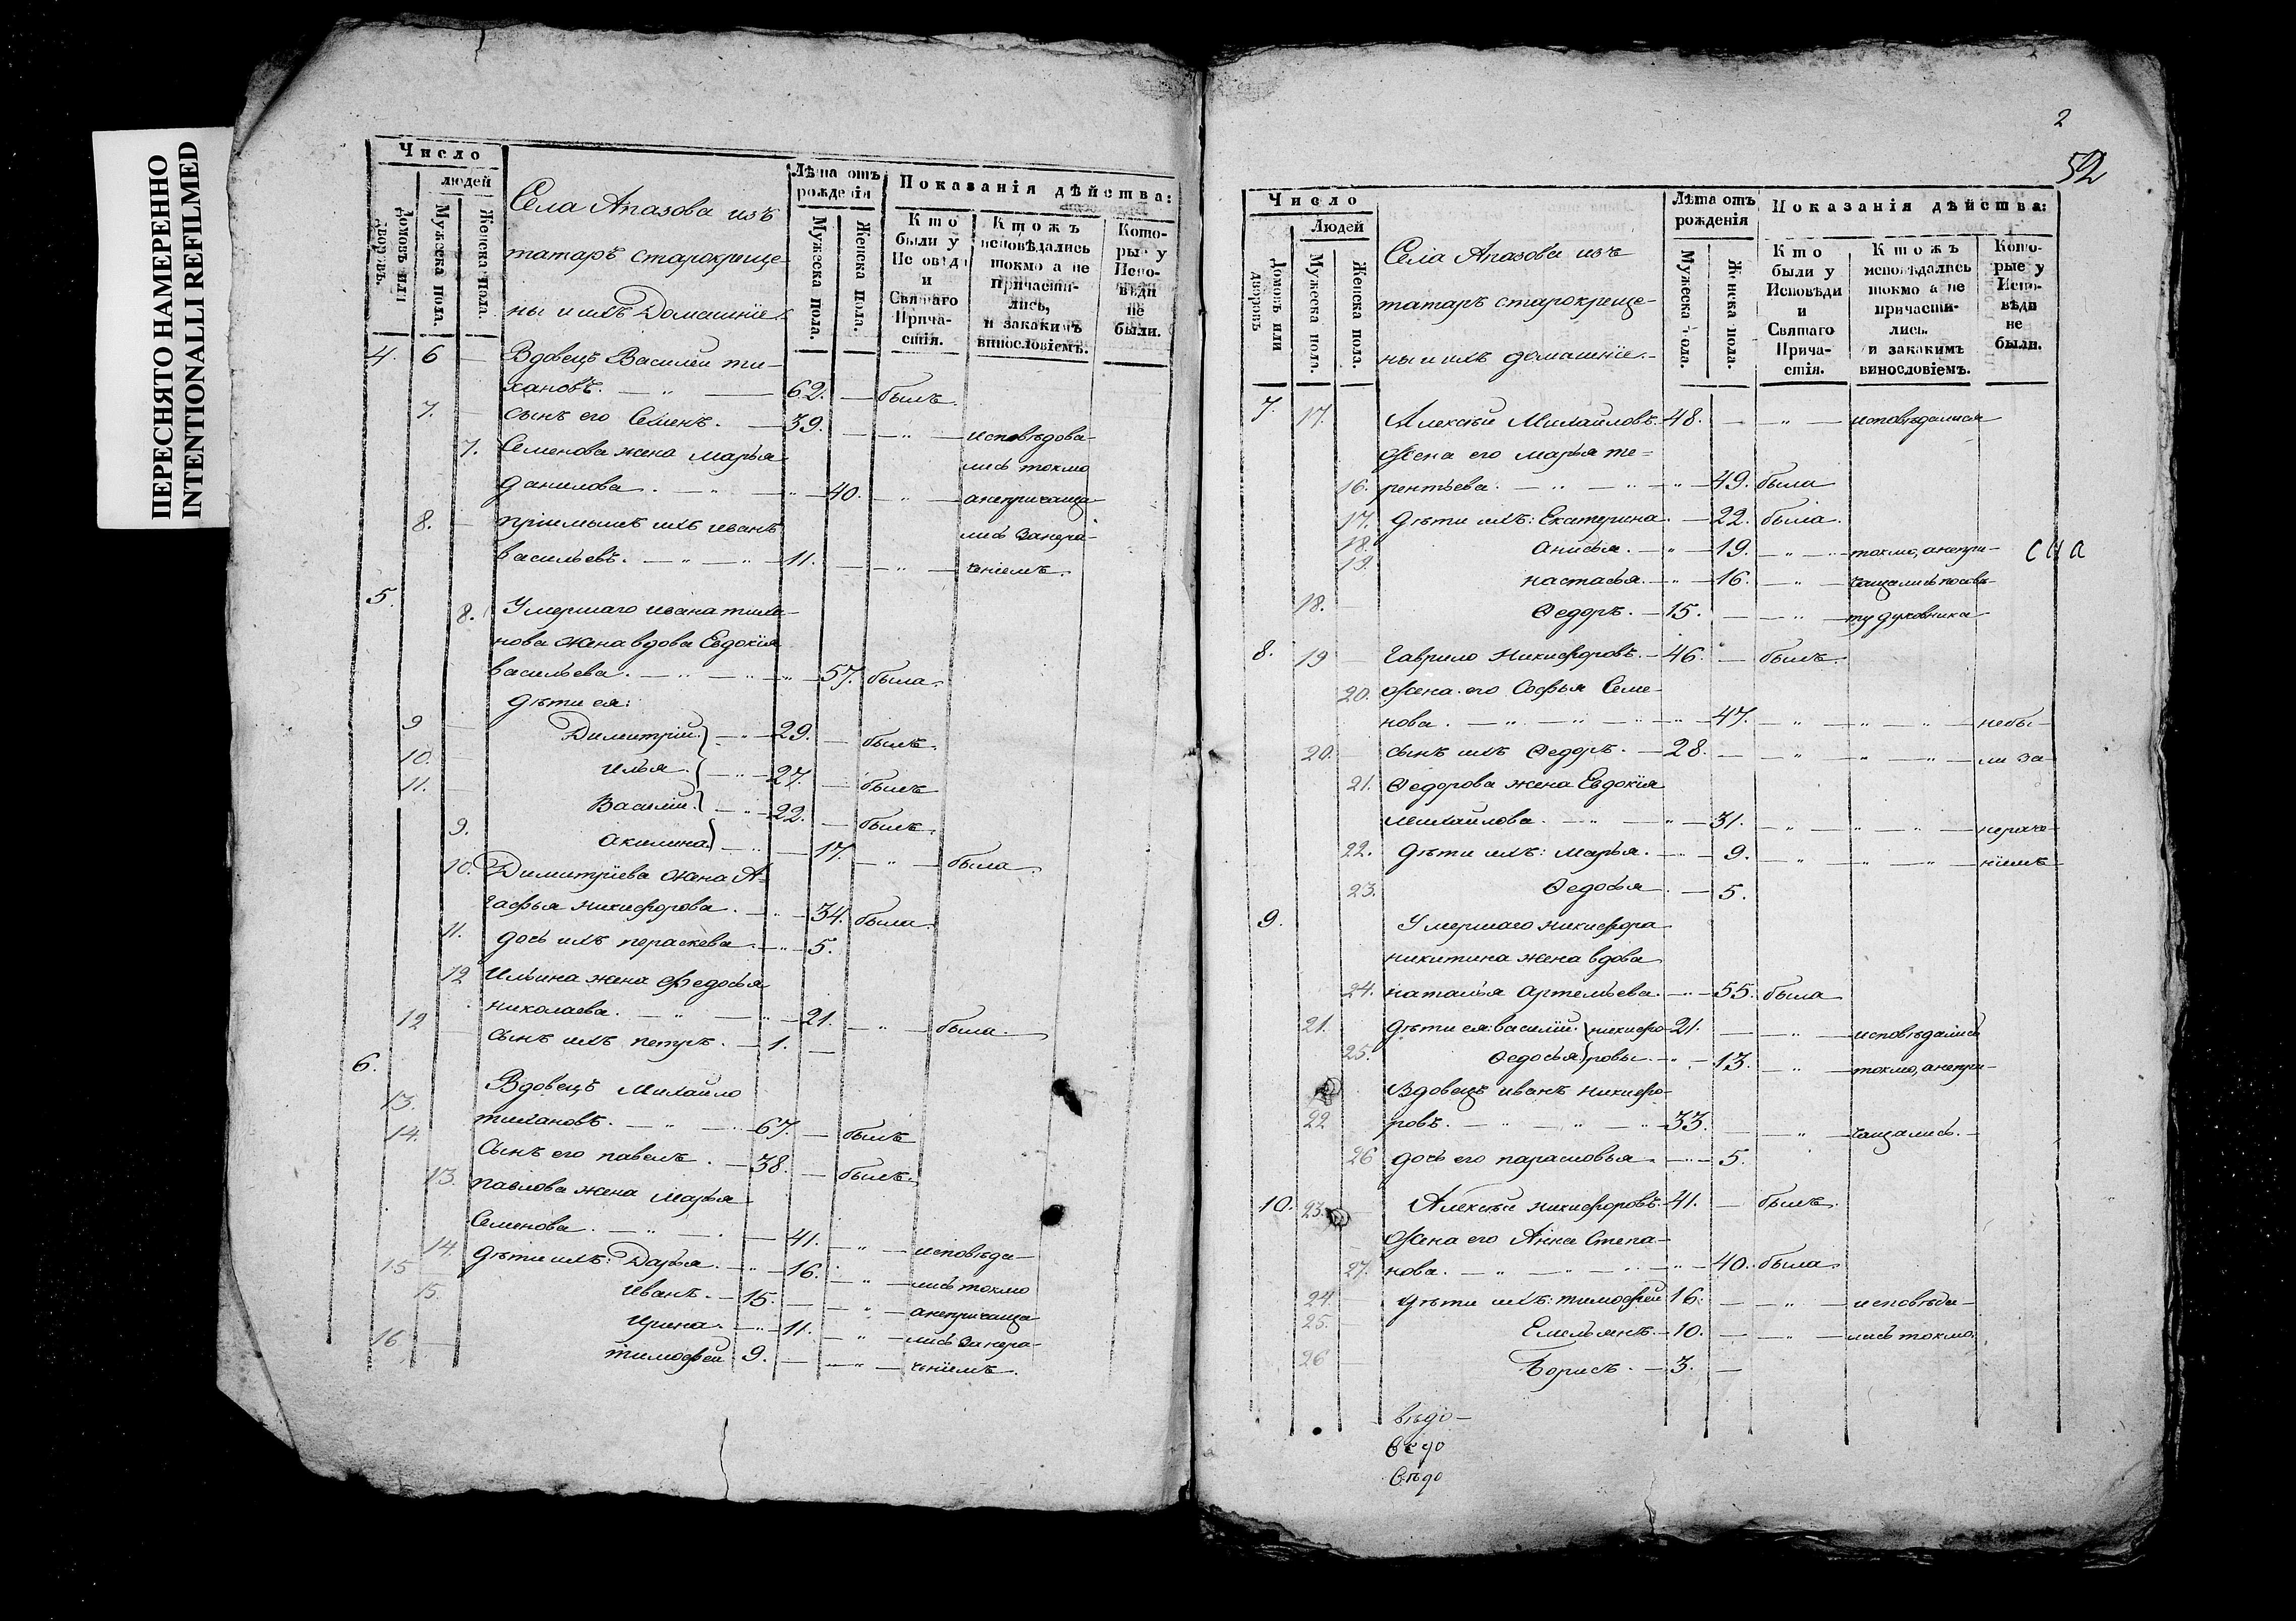 ПЕРЕСНЯТО НАМЕРЕННО
INTENTIONALLI REFILMED
Число
людей
Домовъ или дворовъ.
Мужеска пола.
Женска пола.
Села Апазова изъ
татаръ старокреще-
ны и ихъ Домашніе.
Лѣта отъ рожденія
Мужеска пола.
Женска пола.
Показанія дѣйства:
Кто были у Исповѣди и Святаго Прича-стія.
Ктожъ исповѣдались токмо а не причасти-лись, и закакимъ винословіемъ.
Кото-рые у Испо-вѣди не были.
4. 6 — Вдовецъ Василеи ти-
хановъ. — 62. — былъ.
7. — сынъ его Семенъ. — 39. — „ — исповѣдова-
7. Семенова жена марья лись токмо
данилова. — „ — 40. — „ — анепричаща-
8. — пріимышъ ихъ иванъ лись занера-
васильевъ. — „ — 11. — „ — ченіемъ.
5. 8. Умершаго ивана тиха-
нова жена вдова Евдокія
васильева. — „ — 57. была.
дѣти ея:
9 — Димитріи. — 29. — былъ.
10. — илья. — 27. — былъ
11. — Василіи. — 22. — былъ.
9. акилина — 17. — „ — была.
10. Димитріева жена А-
гафья никифорова. — 34. была.
11. дочь ихъ пераскева. — 5.
12 Ильина жена Ѳедосья
николаева. — „ — 21. — „ — была.
12 — сынъ ихъ петръ. — 1. —
6. Вдовецъ Михайло
13. тихановъ. — „ — 67. — былъ
14. Сынъ его павелъ. — 38. — былъ.
13. павлова жена марья
Семенова. — „ — 41. — „ — исповѣда-
14. дѣти ихъ: Дарья. — 16. — „ — лись токмо
15 иванъ. — 15. — „ — анепричаща-
15. ирина. — 11. — „ — лись занера-
16 — тимофеи. 9. — „ — ченіемъ.
2
52
Число
Людей
Домовъ или дворовъ
Мужеска пола.
Женска пола.
Села Апазова изъ
татаръ старокреще-
ны и ихъ домашніе.
Лѣта отъ рожденія
Мужеска пола.
Женска пола.
Показанія дѣйства:
Кто были у Исповѣди и Святаго Прича-стія.
Ктожъ исповѣдались токмо а не причасти-лись. и закакимъ винословіемъ.
Кото-рые у Испо-вѣди не были.
7. 17. Алексѣи Михаиловъ. — 48. — „ — исповѣдалися
Жена его марья те-
16. рентьева. — „ — 49. была
17. дѣти ихъ: Екатерина. — 22. была.
18. анисья. — „ — 19. — „ — токмо, анепри-
сна
19. настасья. — „ — 16. — „ — чащались посовѣ-
18. — Ѳедоръ. — 15. — „ — ту духовника
8. 19 — Гаврило Никифоровъ. — 46. — былъ.
20. Жена его Софья Семе-
нова. — „ — 47. — „ — небы-
20. — сынъ ихъ Ѳедоръ. — 28. — „ — ли за-
21. Ѳедорова жена Евдокія
михаилова. — „ — 31. — „ — нераче-
22. дѣти ихъ: марья. — 9. — „ — ніемъ
23. Ѳедосья. — 5.
9. Умершаго никифора
никитина жена вдова
24. наталья Артемьева. — 55. была
21. дѣти ея: василіи. никифо- 21. — „ — исповѣдались
25. Ѳедосья ровы. — 13. — „ — токмо, анепри-
Вдовецъ иванъ никифо-
22 ровъ. — „ — 33. — „ — чащались.
26 дочь его парасковья. — 5.
10. 23. Алексѣи никифоровъ. — 41. — былъ.
Жена его Анна Степа-
27. нова. — „ — 40. была.
24. — дѣти ихъ: тимофеи 16. — „ — исповѣда-
25. — Емельянъ. — 10. — „ — лись токмо.
26 Борисъ. — 3. —
вѣдо-
ведо
вѣдо